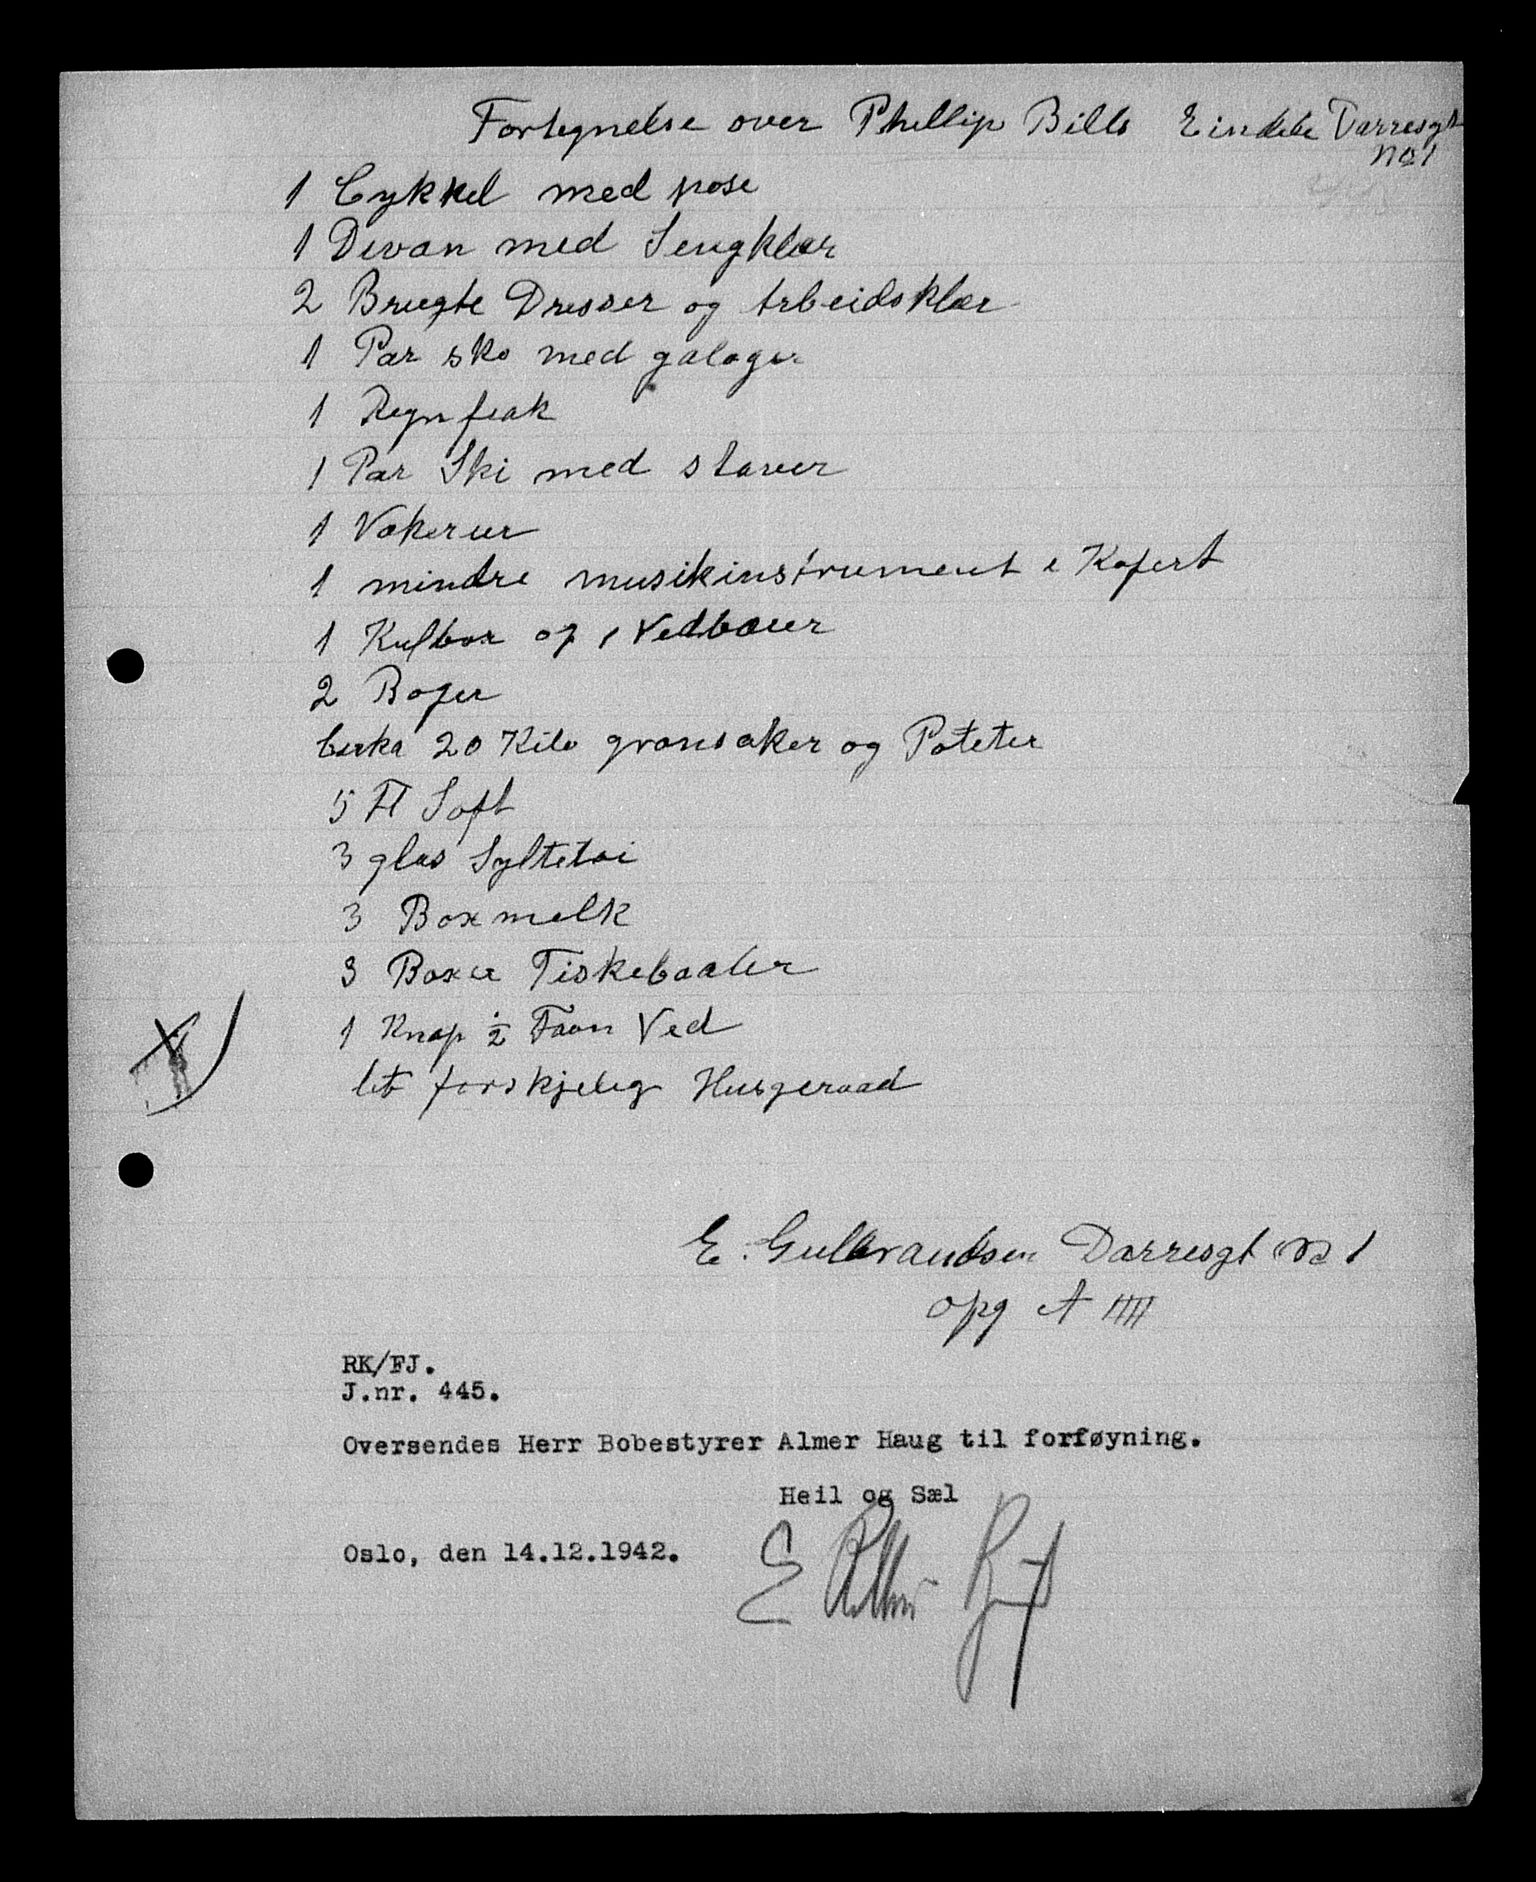 Fortegnelse over Phillip Bills Eindele Darresgt
No 1
1 Cykkel med pose
1 Divan med Sengklær
2 Brugte Dresser og Arbeidsklær
1 Par sko med galoger
1 Regnfrak
1 Par Ski med staver
1 Vækerur
1 mindre musikinstrument i Kofert
1 Kulbox og 1 Vedbærer
2 Bøger
Cirka 20 Kilo grønsaker og Poteter
5 Fl Saft
3 glas Syltetøi
3 Box melk
3 Boxer Fiskeboller
1 Knap 1/2 Favn Ved
lit forskjelig Husgeraad
E. Gulbrandsen Darresgt No 1
opg A IIII
RK/FJ.
J.nr. 445.
Oversendes Herr Bobestyrer Almer Haug til forføyning.
Heil og Sæl
Oslo, den 14.12.1942.